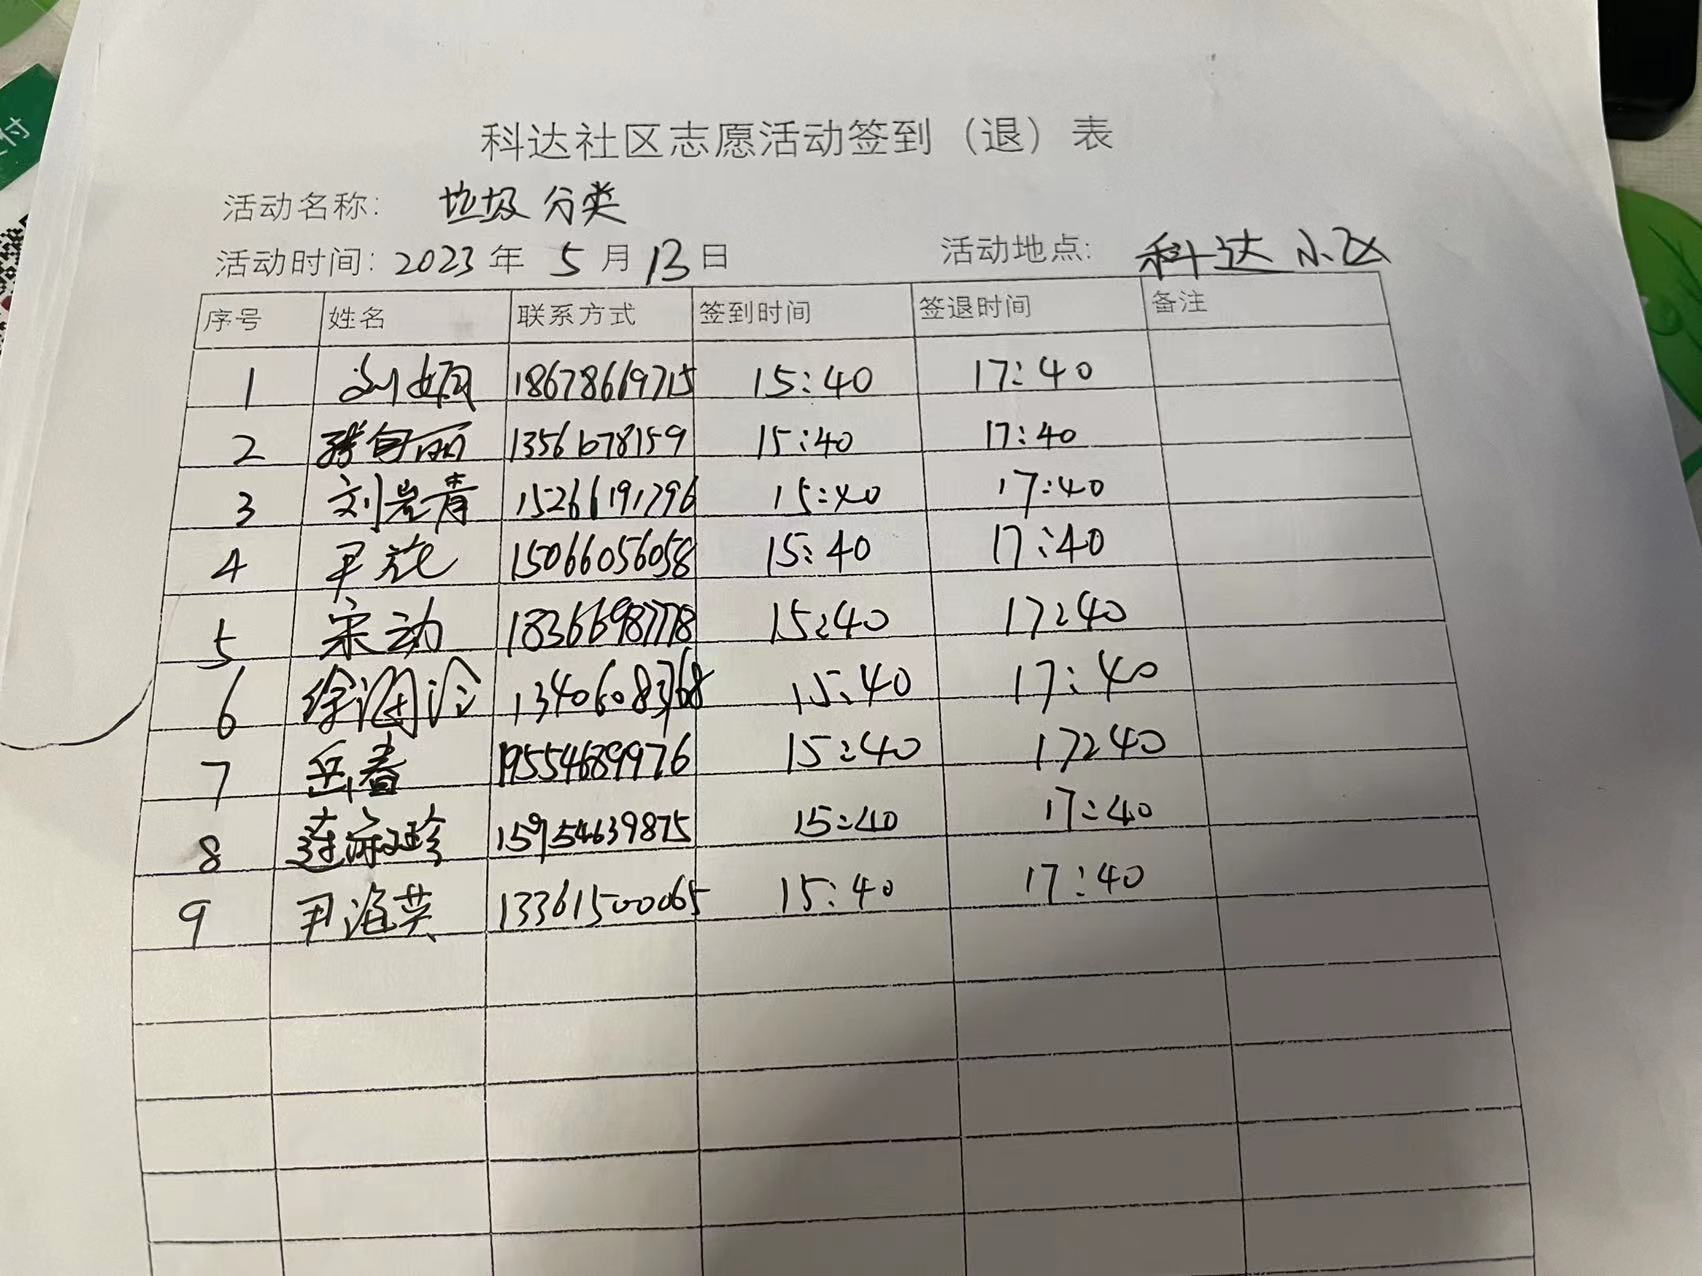 付
科达社区志愿活动签到（退）表
活动名称： 垃圾分类
活动时间：2023年 5月13日 活动地点：科达小区
序号 姓名 联系方式 签到时间 签退时间 备注
1 刘娟 186786619715 15:40 17:40
2 丽 1356678159 15:40 17:40
3 刘岩青 15266191796 15:40 17:40
4 尹 15066056058 15:40 17:40
5 宋动 18366987778 15:40 17:40
6 徐 13406083768 15:40 17:40
7 岳春 19554689976 15:40 17:40
8 15954639875 15:40 17:40
9 尹海英 13361500065 15:40 17:40